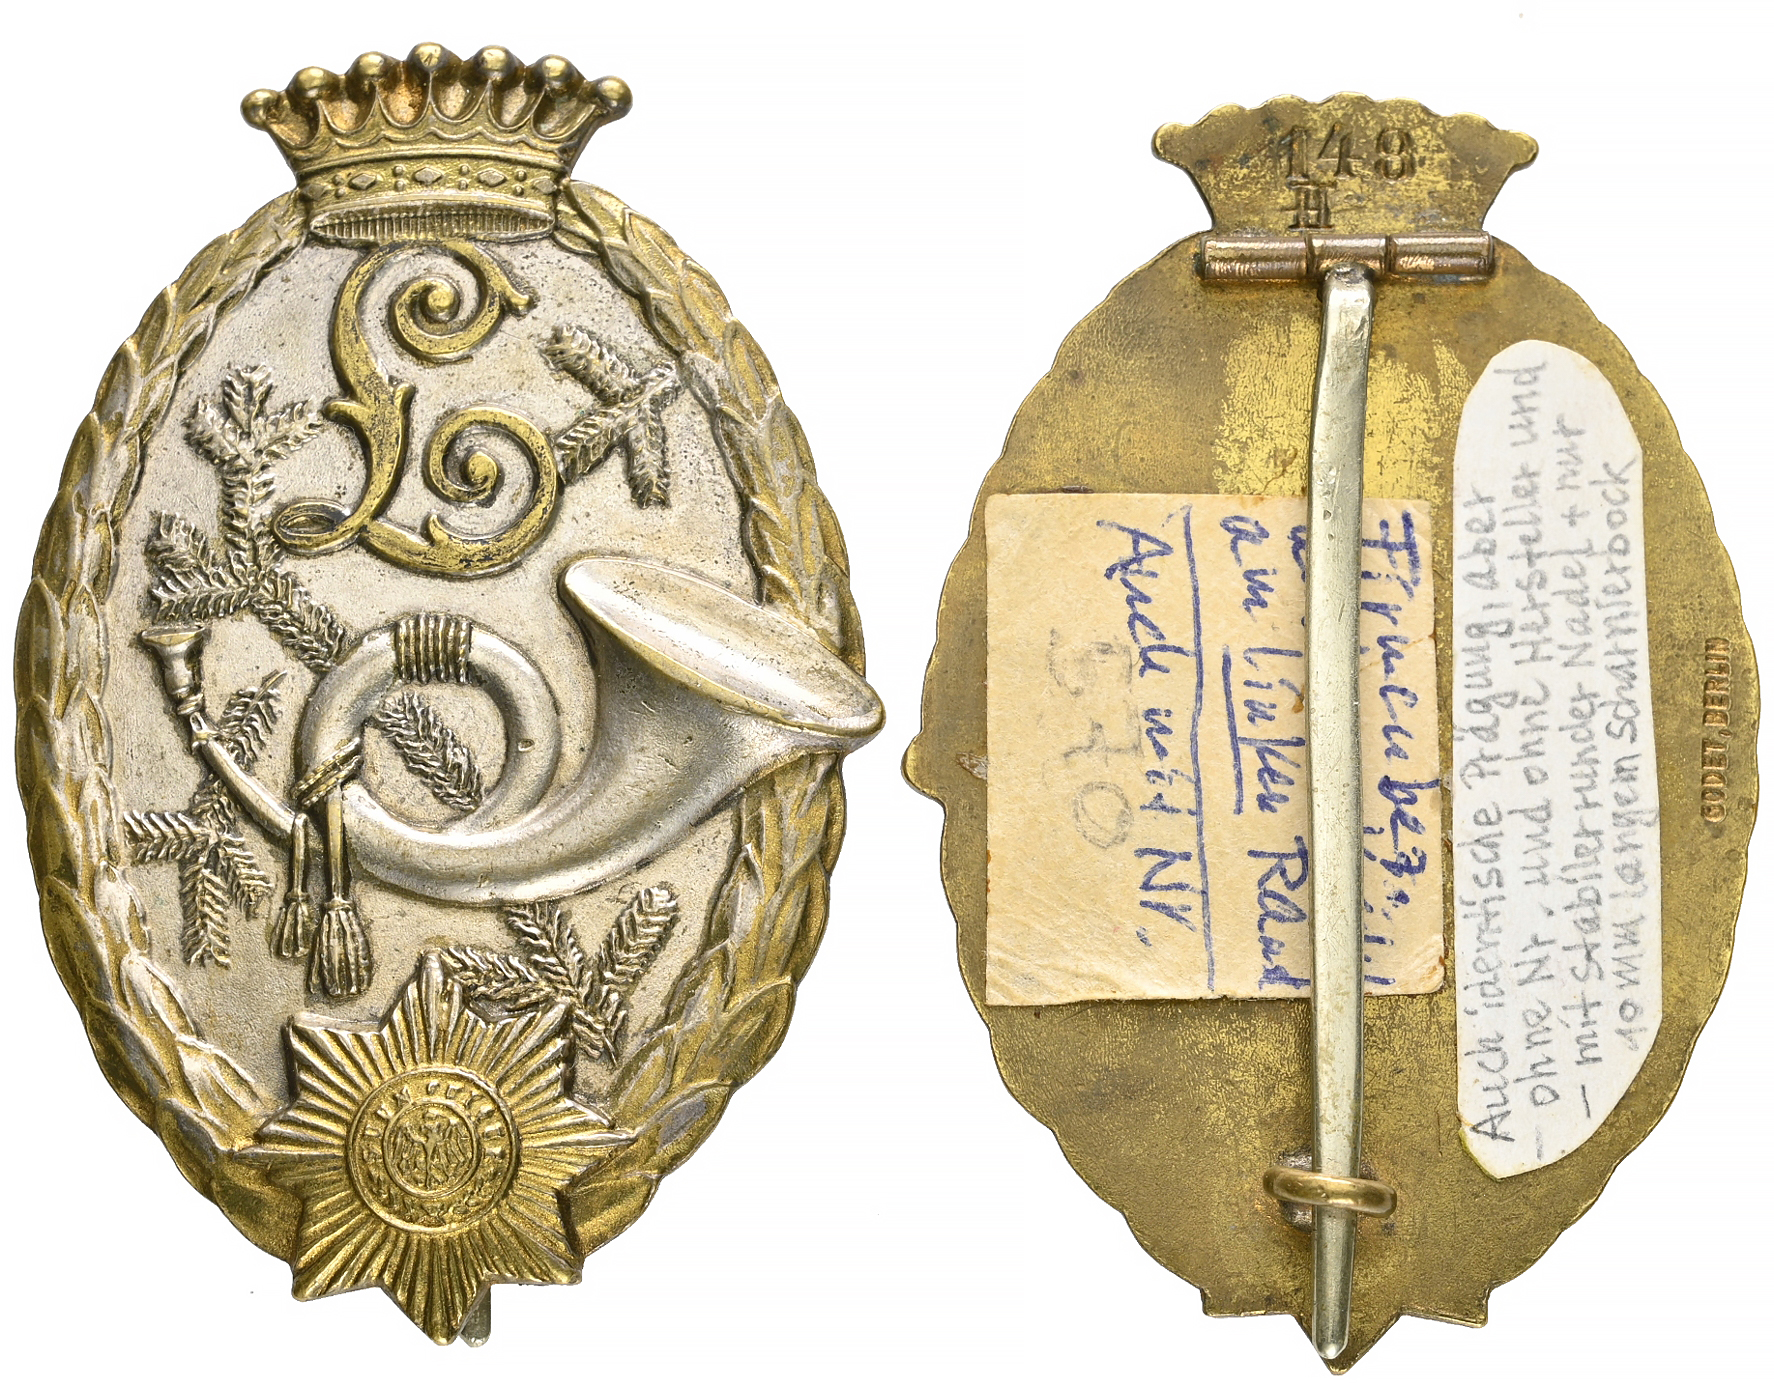 L
SUUM CUIQUE
148
H
GODET, BERLIN
Firmenbez.
am linken Rand
Auch mit Nr.
570
Auch identische Prägung, aber
- ohne Nr. und ohne Hersteller und
- mit stabiler runder Nadel + nur
10 mm langen Scharnierbock